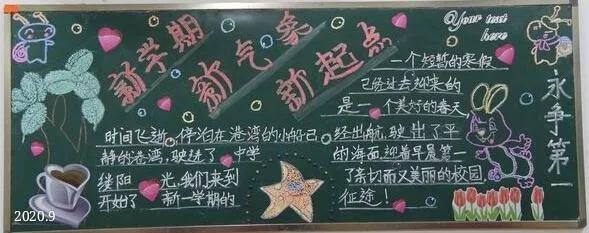 新学期
新气象
新起点
Your text
here
一个短暂的寒假
已经过去迎来的
是一个美好的春天
时间飞逝,停泊在港湾的小船已经出航,驶出了平
静的港湾,驶进了 中学 的海面,迎着早晨第一
缕阳 光,我们来到 了亲切而又美丽的校园
开始了 新一学期的 征途!
永争第一
2020.9